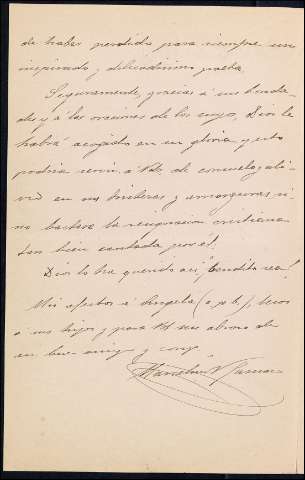 de haber perdido para siempre un
inspirado y delicadísimo poeta.
Seguramente, gracias á sus bonda-
des y á las oraciones de los suyos, Dios le
habrá acogido en su gloria y esto
podria servir á Vds. de consuelo y ali-
vio en sus tristezas y amarguras si
no bastase la resignacion cristiana
tan bien cantada por él.
Dios lo ha querido así ¡bendito sea!
Mis afectos á Angela (q. p. b.), besos
á sus hijos y para Vd un abrazo de
su buen amigo y comp.